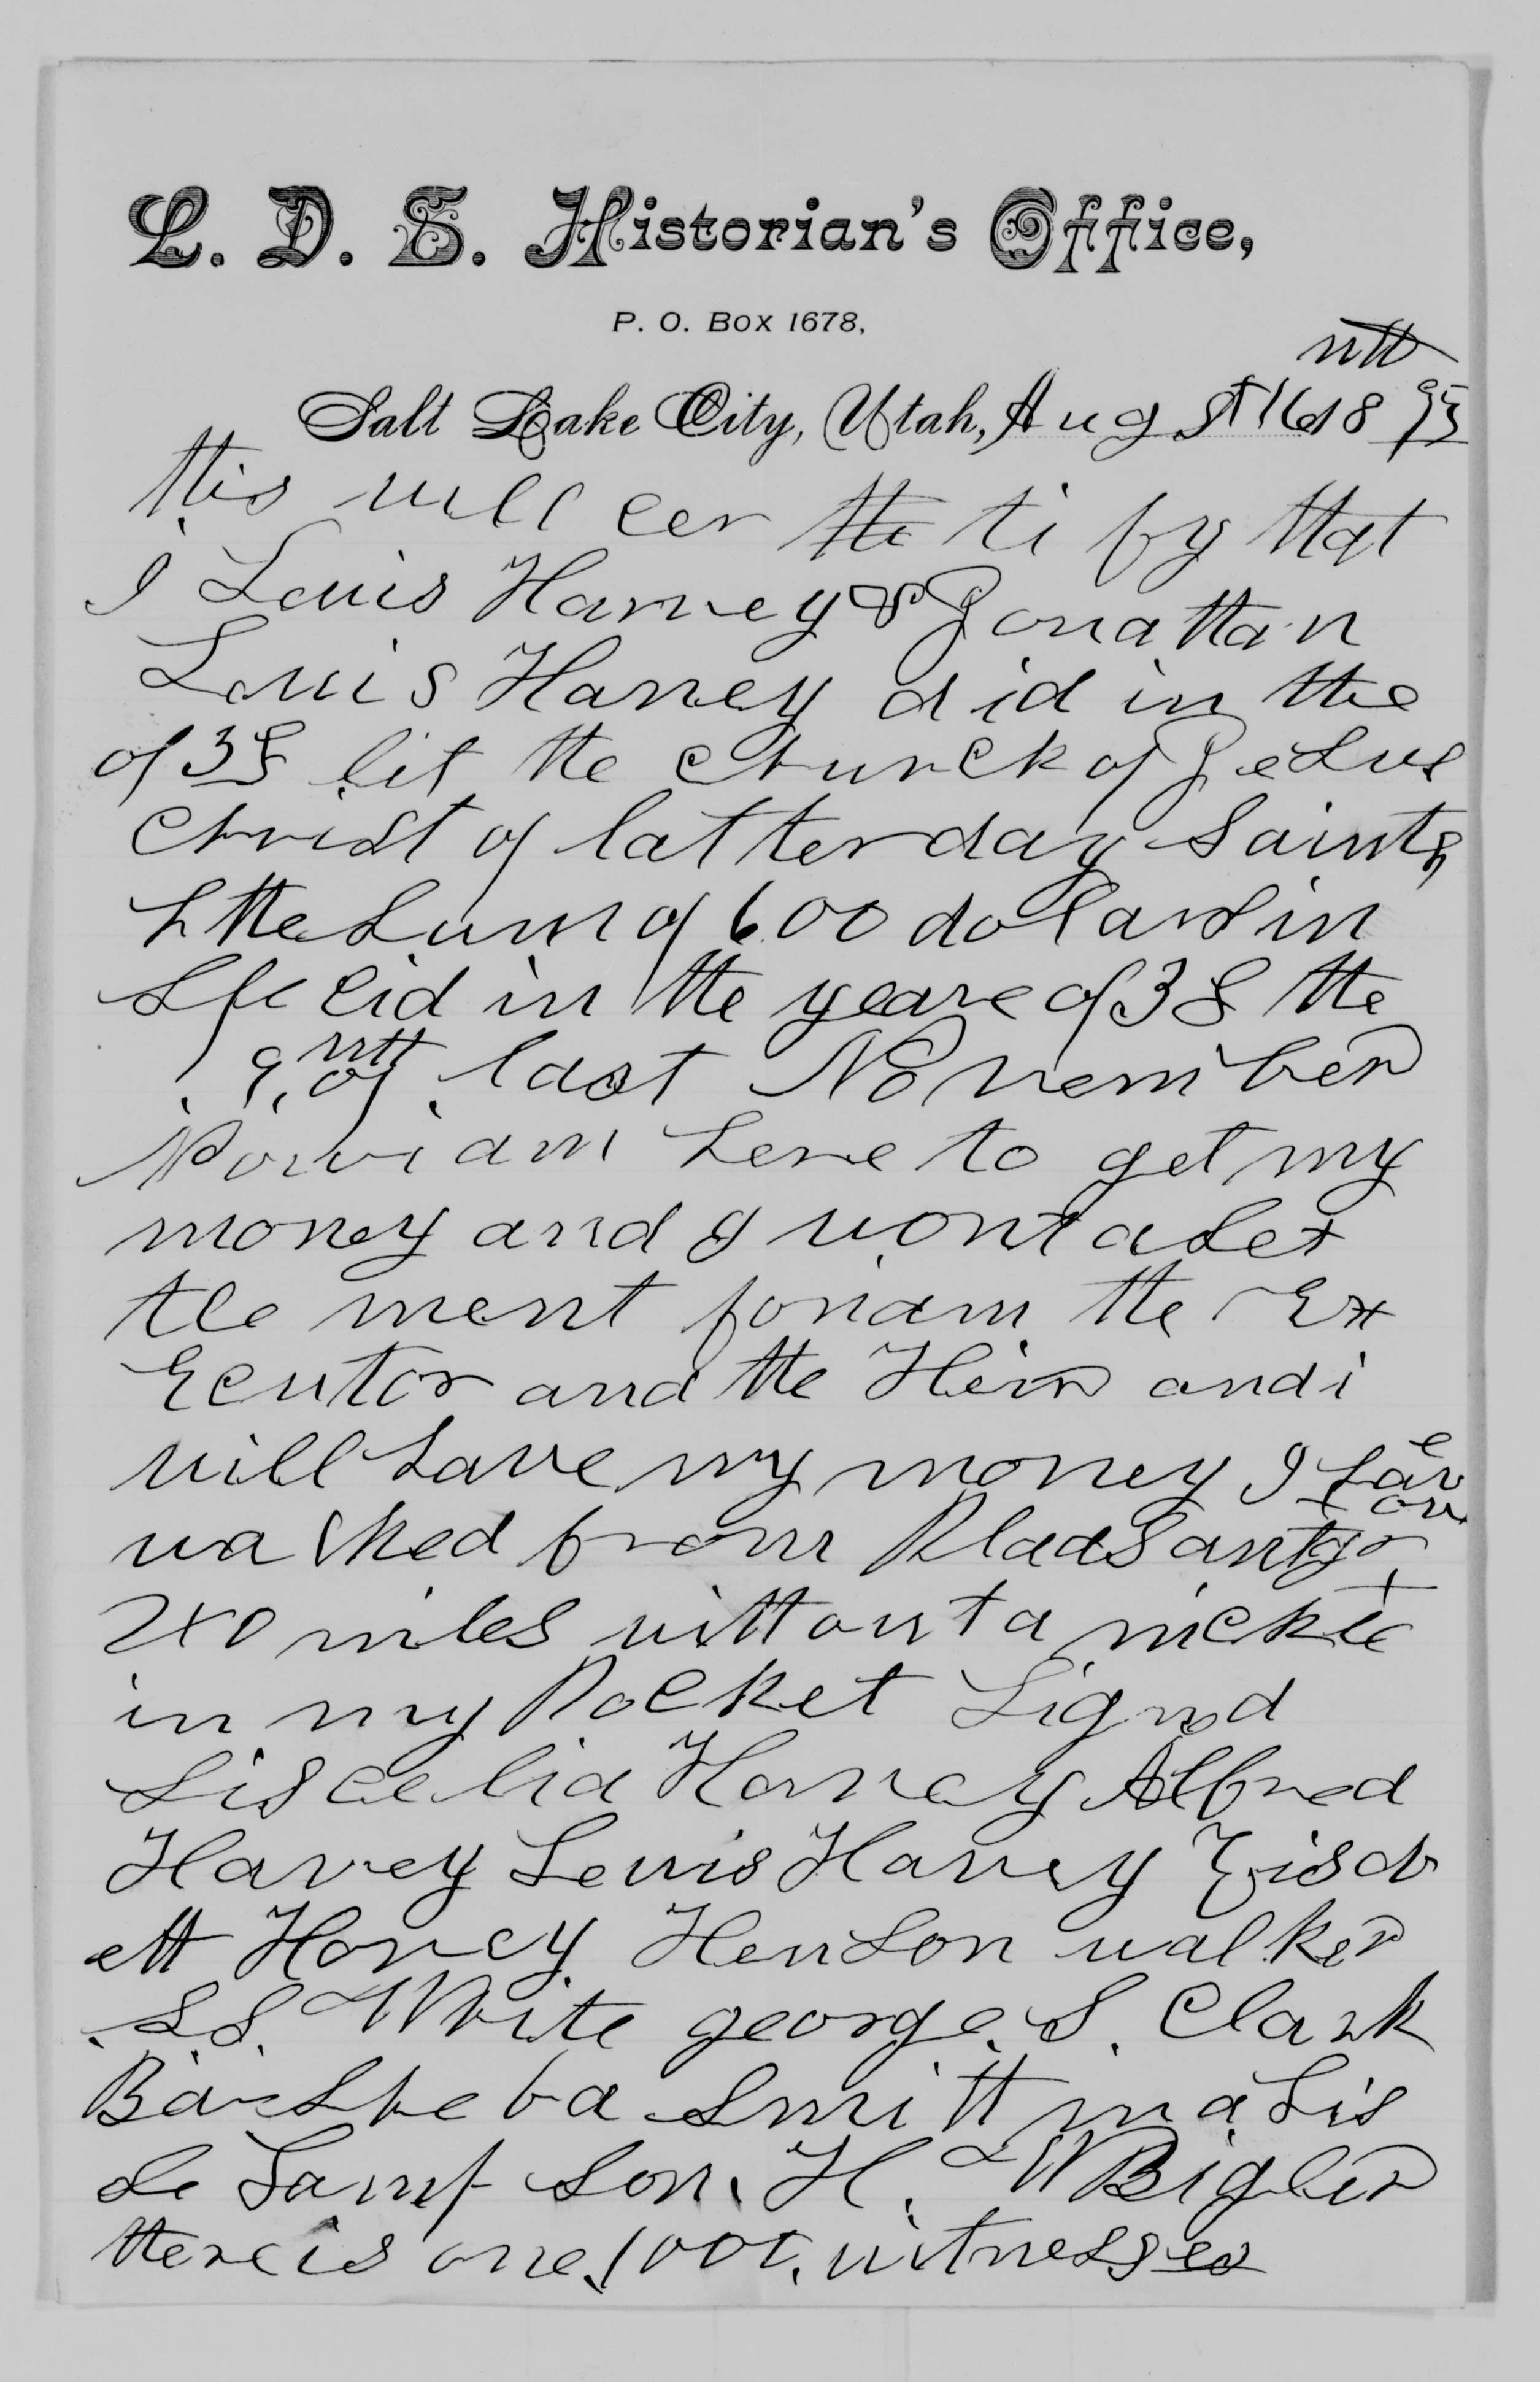 L. D. S. Historian's Office,
P. O. Box 1678,
Salt Lake City, Utah, August 16th 1895
this will cer the ti fy that
I Lewis Harvey & Jonathan
Lewis Harvey did in the
of 38 lit the church of Jesus
Christ of latter day Saints
the Sum of 600 dolars in
Spe cid in the yeare of 38 the
9 of last November
Now i am here to get my
money and I wont a Set
tle ment foriam the Ex
Ecutor and the Heirs and i
will have my money I have
walked from Pleasanton
240 miles without a nickle
in my Pocket Signed
Harvey Alfred
Harvey Lewis Harvey
eth Harvey Henson walker
S.S. White george. S. Clark
Barsheba Smith
Son. H. W Bigler
there is one 1000. witnesses